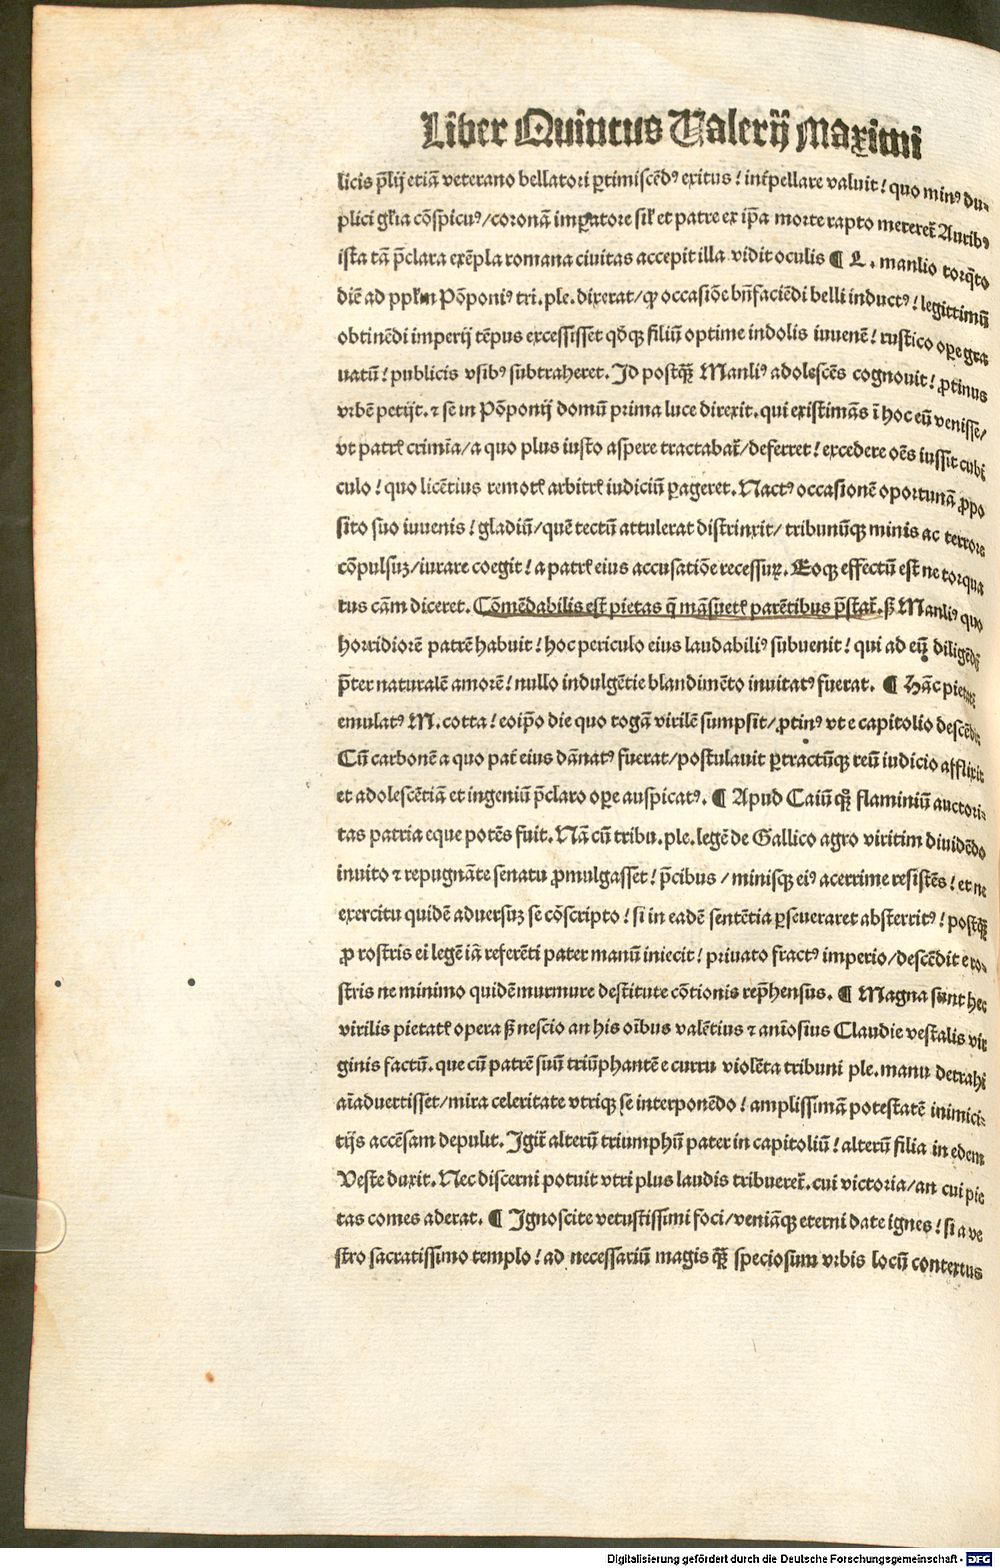 Liber Quintus Valerij Maximi
licis p̄lij etiā veterano bellatori ꝑtimiscēdꝰ exitus! int̄pellare valuit! quo minꝰ du⸗
plici gl̄ia cōspicuꝰ/coronā imꝑatore sil̄ et patre ex ip̄a morte rapto mereret̄ Auribꝰ
ista tā p̄clara exēpla romana ciuitas accepit illa vidit oculis ¶ L. manlio torq̄to
diē ad ppl̄m Pōponiꝰ tri. ple. dixerat/ꝙ occasiōe bn̄faciēdi belli inductꝰ! legittimū
obtinēdi imperij tēpus excessisset qd̄qꝫ filiū optime indolis iuuenē! rustico oꝑe gra
uatū! publicis vsibꝰ subtraheret. Id postqꝫ̄ Manliꝰ adolescēs cognouit! ꝓtinus
vrbē petijt. ⁊ se in Pōponij domū prima luce direxit. qui existimās ī hoc eū venisse/
vt patrꝭ crimīa/a quo plus iusto aspere tractabat̄/deferret! excedere oēs iussit cubi
culo! quo licētius remotꝭ arbitrꝭ iudiciū ꝑageret. Nactꝰ occasionē oportunā ꝓpo
sito suo iuuenis! gladiū/quē tectū attulerat distrinxit/ tribunūqꝫ minis ac terrore
cōpulsuꝫ/iurare coegit! a patrꝭ eius accusatiōe recessuꝝ. Eoqꝫ effectū est ne torqua
tus cām diceret. Cōmēdabilis est pietas q̄ māsuetꝭ parētibus p̄stat̄. sꝫ Manliꝰ quo
horridiorē patrē habuit! hoc periculo eius laudabiliꝰ subuenit! qui ad eū diligēdū
p̄ter naturalē amorē! nullo indulgētie blandimēto inuitatꝰ fuerat. ¶ Hāc pietatē
emulatꝰ M. cotta! eoip̄o die quo togā virilē sumpsit/ꝓtinꝰ vt e capitolio descēdit
Cū carbonē a quo pat̄ eius dānatꝰ fuerat/postulauit ꝑtractūqꝫ reū iudicio afflixit
et adolescētiā et ingeniū p̄claro oꝑe auspicatꝰ. ¶ Apud Caiū qꝫ̄ flaminiū auctori⸗
tas patria eque potēs fuit. Nā cū tribu. ple. legē de Gallico agro viritim diuidēdo
inuito ⁊ repugnāte senatu ꝓmulgasset! p̄cibus / minisqꝫ eiꝰ acerrime resistēs! et ne
exercitu quidē aduersuꝫ se cōscripto! si in eadē sentētia ꝑseueraret absterritꝰ! postqꝫ̄
ꝓ rostris ei legē iā referēti pater manū iniecit! priuato fractꝰ imperio/descēdit e ro⸗
stris ne minimo quidē murmure destitute cōtionis rep̄hensus. ¶ Magna sunt hec
virilis pietatꝭ opera sꝫ nescio an his oībus valētius ⁊ anīosius Claudie vestalis vir
ginis factū. que cū patrē suū triūphantē e curru violēta tribuni ple. manu detrahi
aīaduertisset/mira celeritate vtriqꝫ se interponēdo! amplissimā potestatē inimici⸗
tijs accēsam depulit. Igit̄ alterū triumphū pater in capitoliū! alterū filia in edem
Veste duxit. Nec discerni potuit vtri plus laudis tribueret̄. cui victoria/an cui pie
tas comes aderat. ¶ Ignoscite vetustissimi foci/veniāqꝫ eterni date ignes! si a ve
stro sacratissimo templo! ad necessariū magis qꝫ̄ speciosum vrbis locū contextus
Digitalisierung gefördert durch die Deutsche Forschungsgemeinschaft - DFG